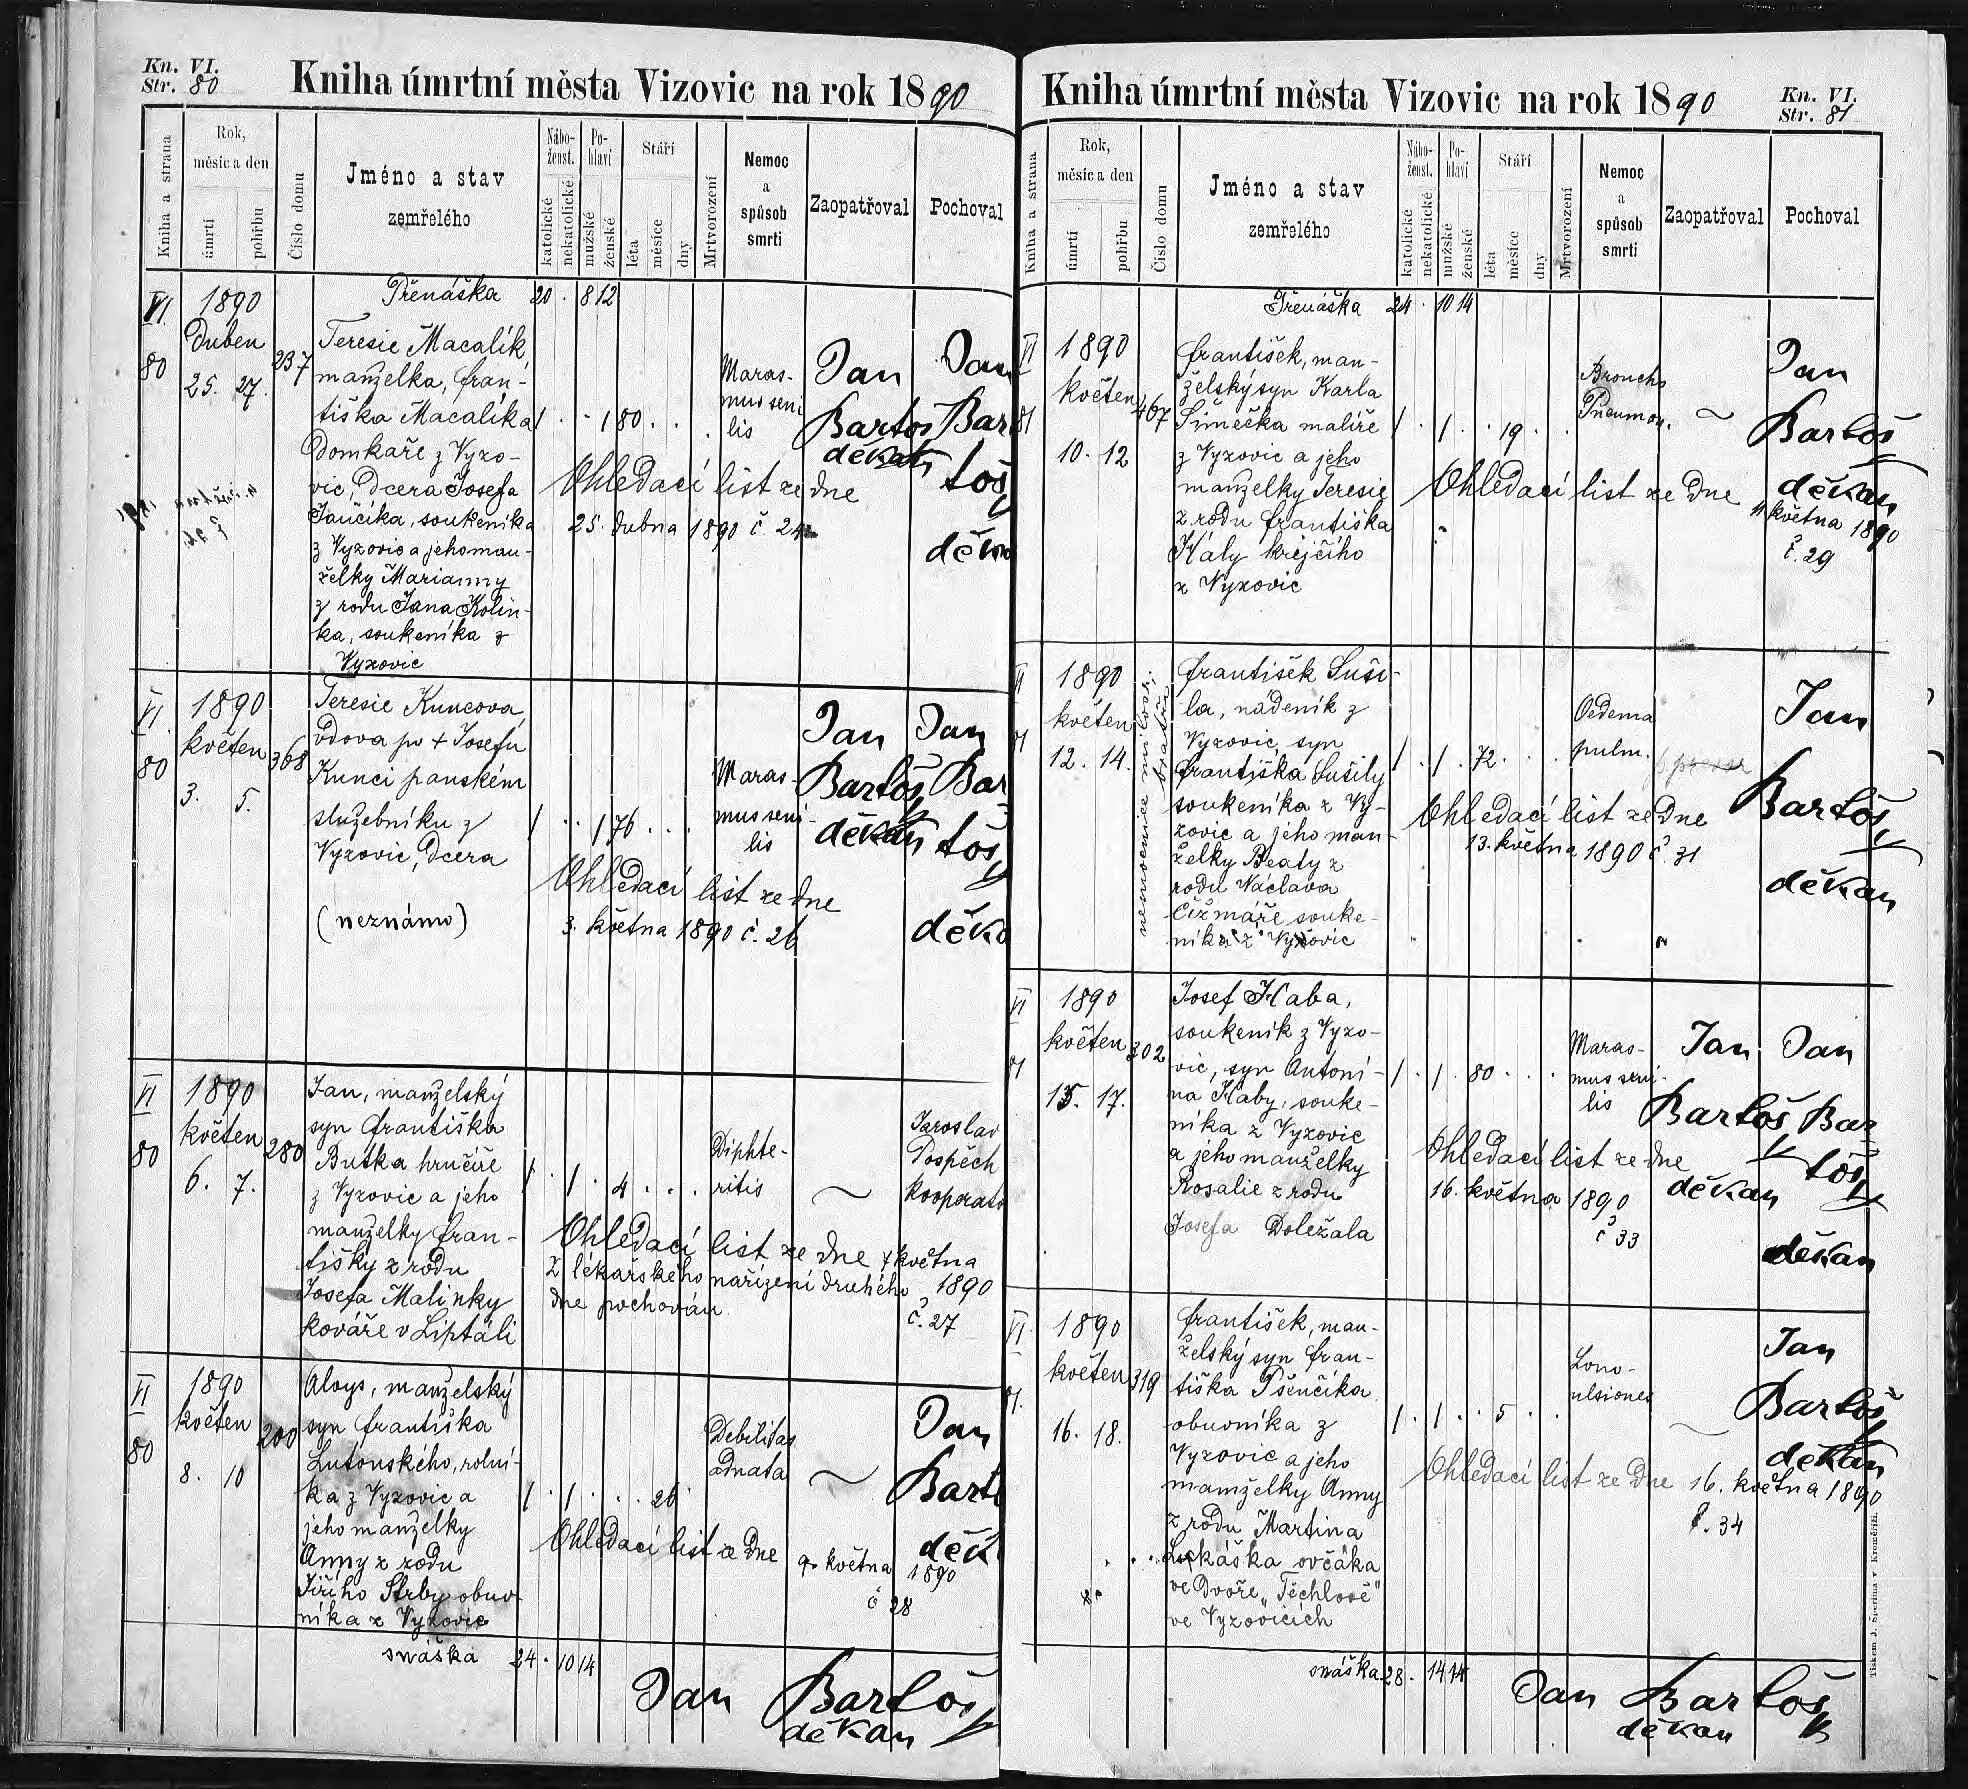 Kn. VI.
Str. 80
Kniha úmrtní města Vizovic na rok 1890
Kniha a strana
Rok,
měsíc a den
úmrtí
pohřbu
Číslo domu
Jméno a stav
zemřelého
Nábo-
ženst.
katolické
nekatolické
Po-
hlaví
mužské
ženské
Stáří
léta
měsíce
dny
Mrtvorození
Nemoc
a
spůsob
smrti
Zaopatřoval
Pochoval
Přenáška 20 . 8 12
VI
80
1890
Duben
25. 27.
237
Teresie Macalík,
manželka, fran-
tiška Macalíka
Domkaře z Vyzo-
vic, Dcera Josefa
Jančíka, soukeníka
z Vyzovic a jeho man-
želky Marianny
z rodu Jana Kolín-
ka, soukeníka z
Vyzovic
1 . . 1 80 . . .
Maras-
mus seni
lis
Jan
Bartoš
děkan
Jan
Bar
toš
děkan
Ohledací list ze dne
25. dubna 1890 č. 24
VI
80
1890
květen
3. 5.
368
Teresie Kuncova,
vdova po + Josefu
Kunci panském
služebníku z
Vyzovic, Dcera
(neznámo)
1 . . 1 76 . . .
Maras-
mus seni-
lis
Jan
Bartoš
děkan
Jan
Bar
toš
děka
Ohledací list ze dne
3. května 1890 č. 26
VI
80
1890
květen
6. 7.
280
Jan, manželský
syn františka
Butka hrnčíře
z Vyzovic a jeho
manželky fran-
tišky z rodu
Josefa Malinky
kováře v Liptáli
1 . 1 . 4 . . .
Diphte-
ritis
Jaroslav
Pospěch
kooperato
Ohledací list ze dne 7 května
z lékařského nařízení druhého 1890
dne pochován
č. 27
VI
80
1890
květen
8. 10
200
Aloys, manželský
syn františka
Lutonského, rolní-
ka z Vyzovic a
jeho manželky
Anny z rodu
Jiřího Štrby obuv-
níka z Vyzovic
1 . 1 . . . 26
Debilitas
adnata
Jan
Bart
děk
Ohledací list ze Dne 9. května 1890
č 28
snáška 24 . 10 14
Jan Bartoš
děkan
Kniha úmrtní města Vizovic na rok 1890
Kn. VI.
Str. 81
Kniha a strana
Rok,
měsíc a den
úmrtí
pohřbu
Číslo domu
Jméno a stav
zemřelého
Nábo-
ženst.
katolické
nekatolické
Po-
hlaví
mužské
ženské
Stáří
léta
měsíce
dny
Mrtvorození
Nemoc
a
spůsob
smrti
Zaopatřoval
Pochoval
Přenáška 24 . 10 14
VI
81
1890
květen
10. 12
467
františek, man-
želský syn Karla
Šimečka malíře
z Vyzovic a jeho
manželky Teresie
z rodu františka
Kály krejčího
z Vyzovic
1 . 1 . . 19 . .
Broncho
Pneumon.
Jan
Bartoš
děkan
Ohledací list ze Dne 11 května 1890
č. 29
VI
81
1890
květen
12. 14.
nemocnice milosr.
bratří
františek Suši-
la, nádeník z
Vyzovic, syn
františka Sušily
soukeníka z Vy-
zovic a jeho man-
želky Beaty z
rodu Václava
Čižmáře souke-
níka z Vyzovic
1 . 1 . 72 . . .
Oedema
pulm.
Jan
Bartoš
děkan
Ohledací list ze Dne
13. května 1890 č. 31
VI
81
1890
květen
15. 17.
302
Josef Haba,
soukeník z Vyzo-
vic, syn Antoní-
na Haby, souke-
níka z Vyzovic
a jeho manželky
Rosalie z rodu
Josefa Doležala
1 . 1 . 80 . . .
Maras-
mus seni-
lis
Jan
Bartoš
děkan
Jan
Bar
toš
děkan
Ohledací list ze dne
16. května 1890
č 33
VI
81.
1890
květen
16. 18.
319
františek, man-
želský syn fran-
tiška Pšenčíka
obuvníka z
Vyzovic a jeho
manželky Anny
z rodu Martina
Lukáška ovčáka
ve Dvoře „Těchlově"
ve Vyzovicích
1 . 1 . . 5 . .
Conv-
ulsiones
Jan
Bartoš
děkan
Ohledací list ze Dne 16. května 1890
č. 34
snáška 28 . 14 14
Jan Bartoš
děkan
Tiskem J. Šperlína v Kroměříži.